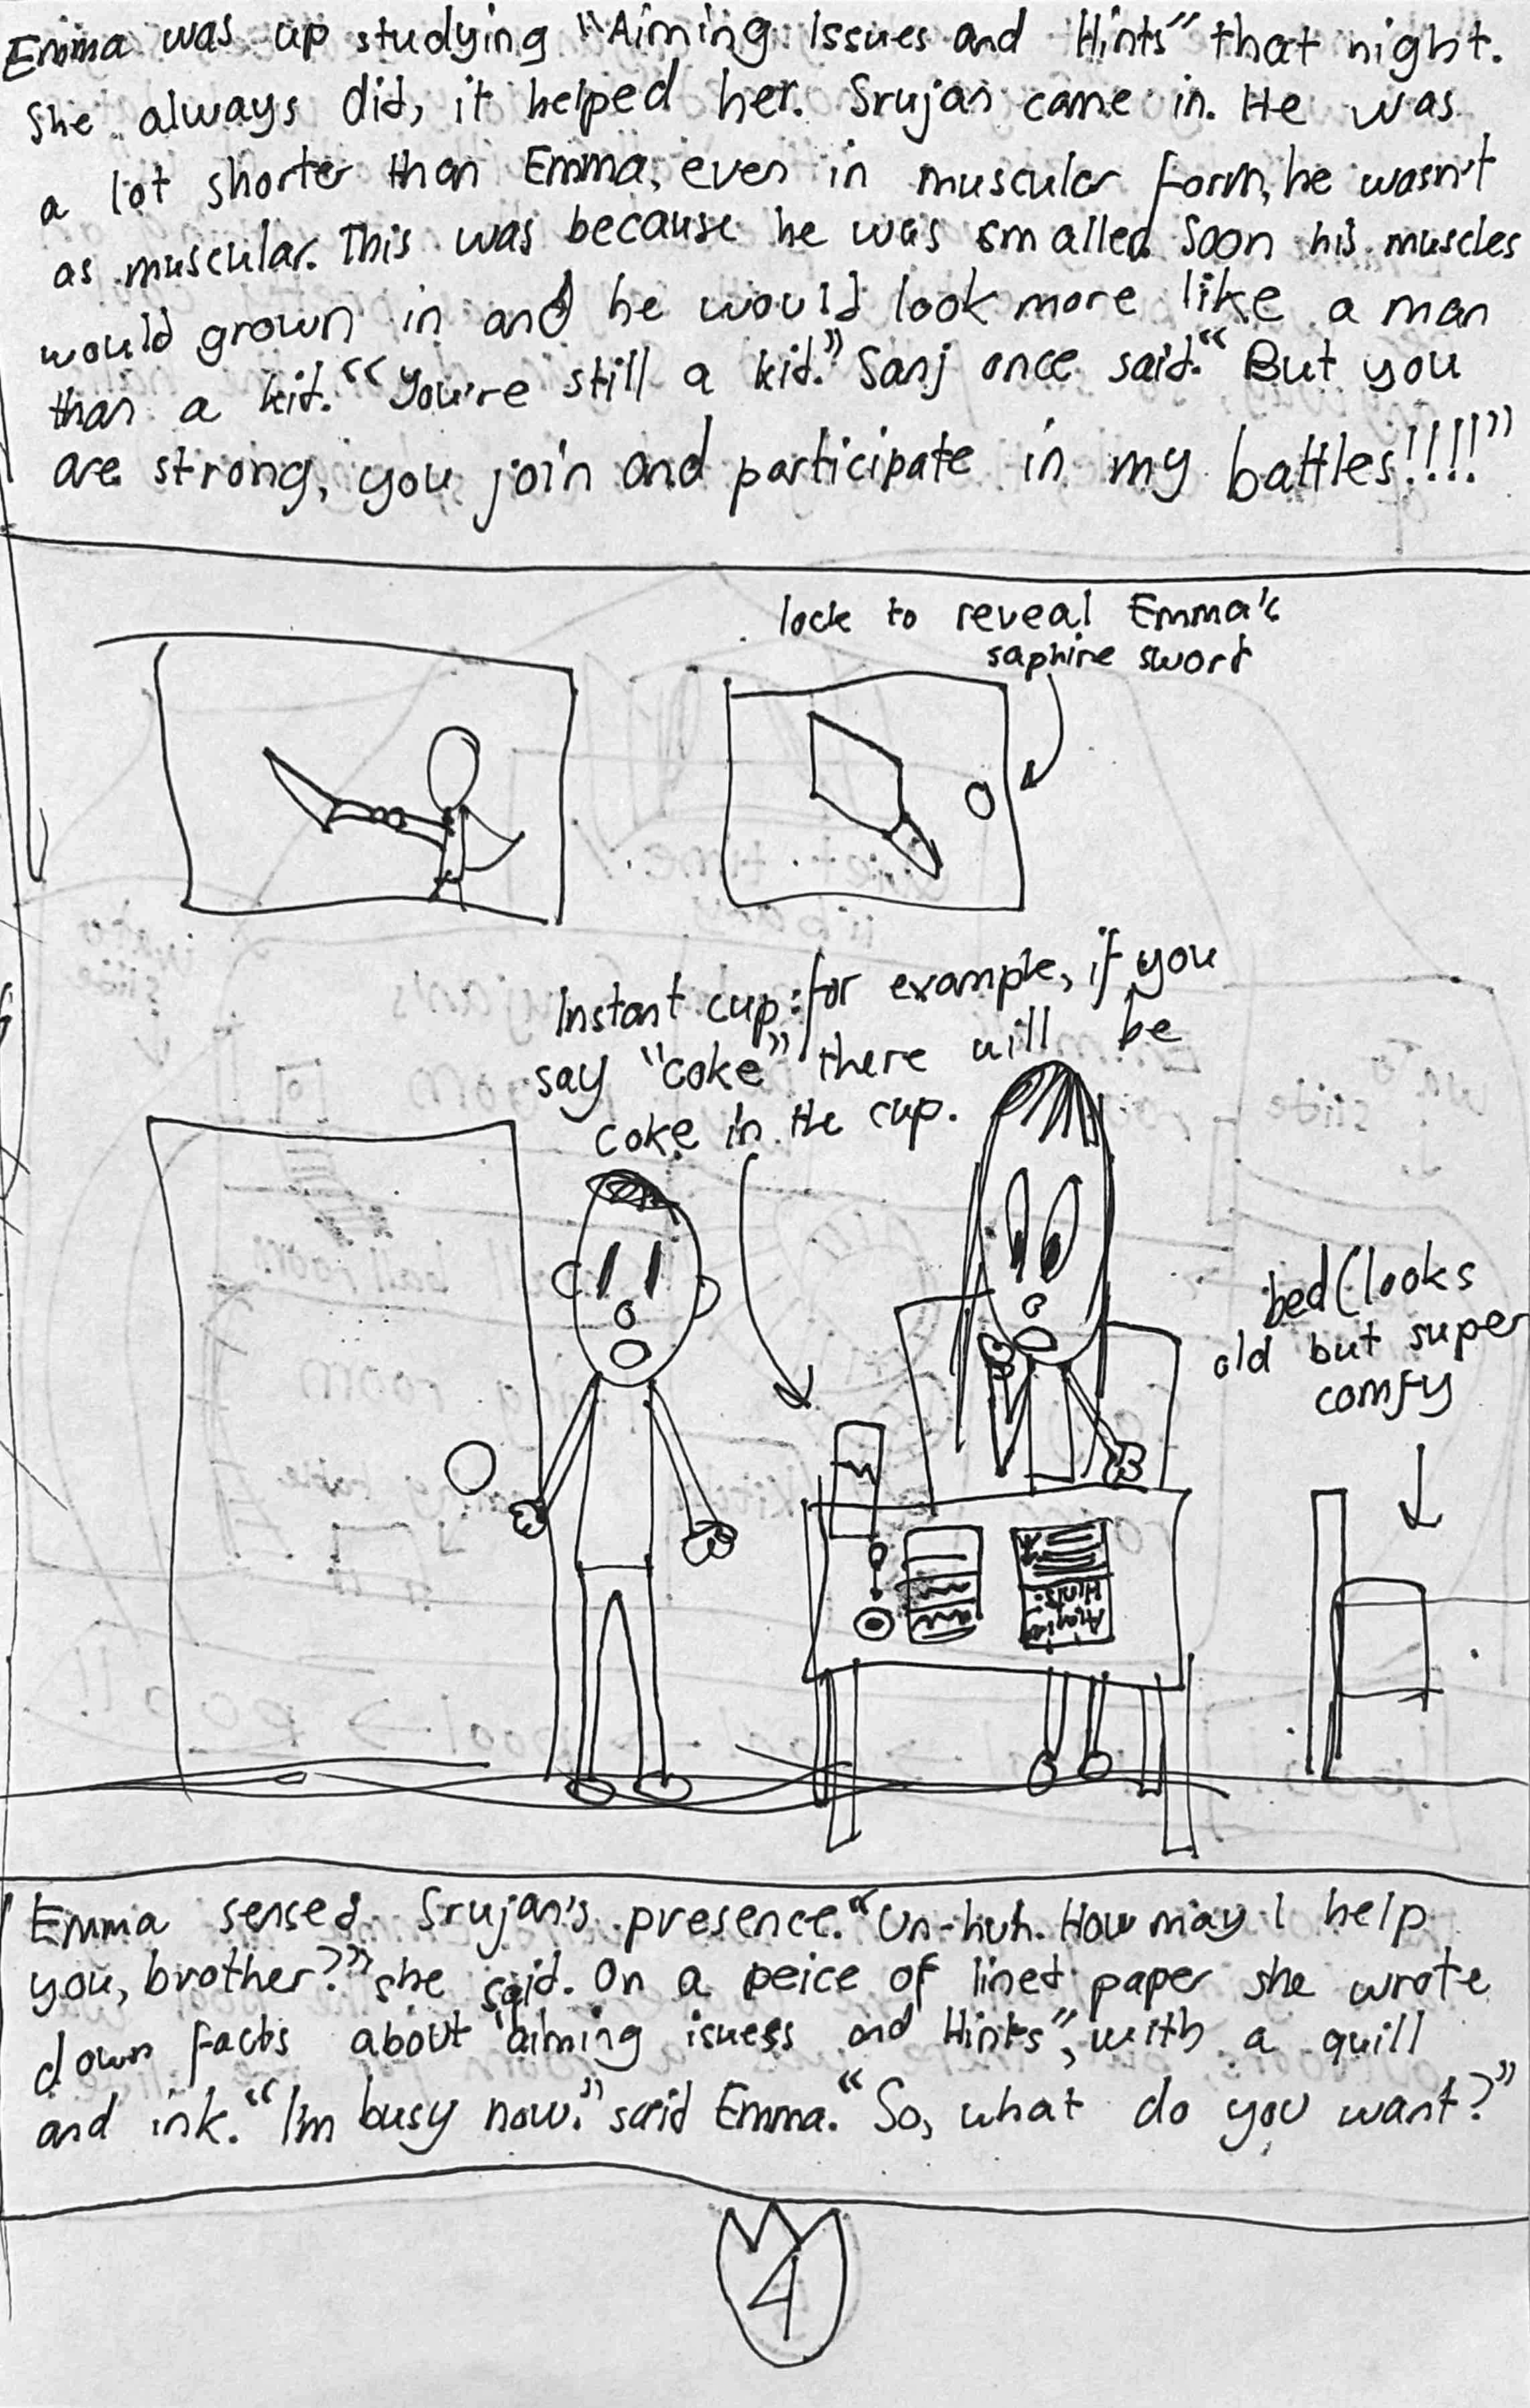 Emma was up studying "Aiming Issues and Hints" that night.
She always did, it helped her. Srujan came in. He was
a lot shorter than Emma, even in muscular form, he wasn't
as muscular. This was because he was smalled. Soon his muscles
would grown in and he would look more like a man
than a kid. "You're still a kid." Sanj once said. "But you
are strong, you join and participate in my battles!!!!"
lock to reveal Emma's
saphire sword
Instant cup: for example, if you
say "coke" there will be
coke in the cup.
bed (looks
old but super
comfy
Hints:
Emma sensed Srujan's presence. "Un-huh. How may I help
you, brother?" she said. On a peice of lined paper she wrote
down facts about "aiming isuess and Hints", with a quill
and ink. "I'm busy now." said Emma. "So, what do you want?"
4